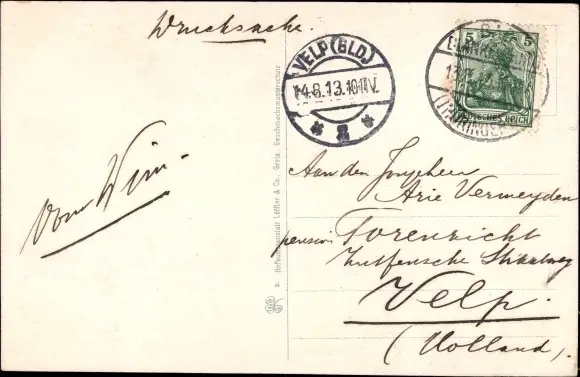 Drucksache.
VELP (GLD.)
14.8.13.10-11V.
2
5
DEUTSCHES REICH
(THÜRINGEN)
vom Wim.
Aan den Jongeheer
Arie Vermeyden
pension Torenzicht
Zutfensche Straatweg
Velp.
(Holland).
Löffler & Co., Greiz.